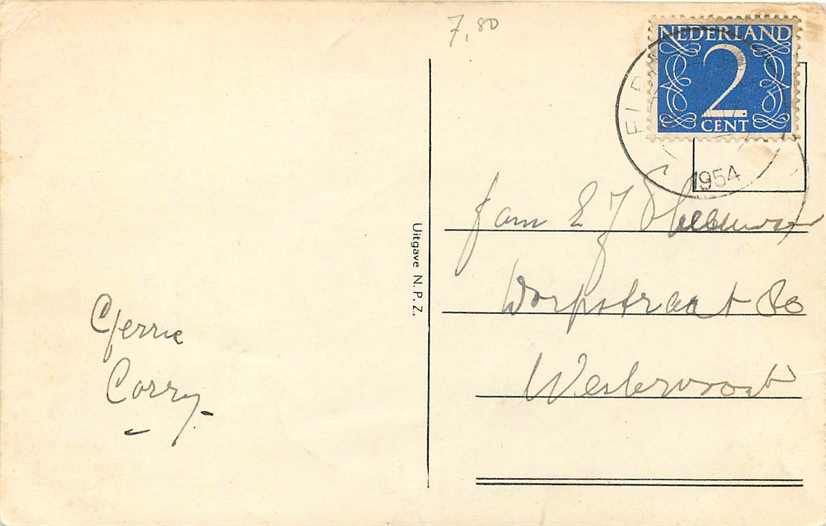 7,80
NEDERLAND
2
CENT
1954
Fam E J
Dorpstraat 80
Westervoort
Uitgave N.P.Z.
Gerrie
Corry